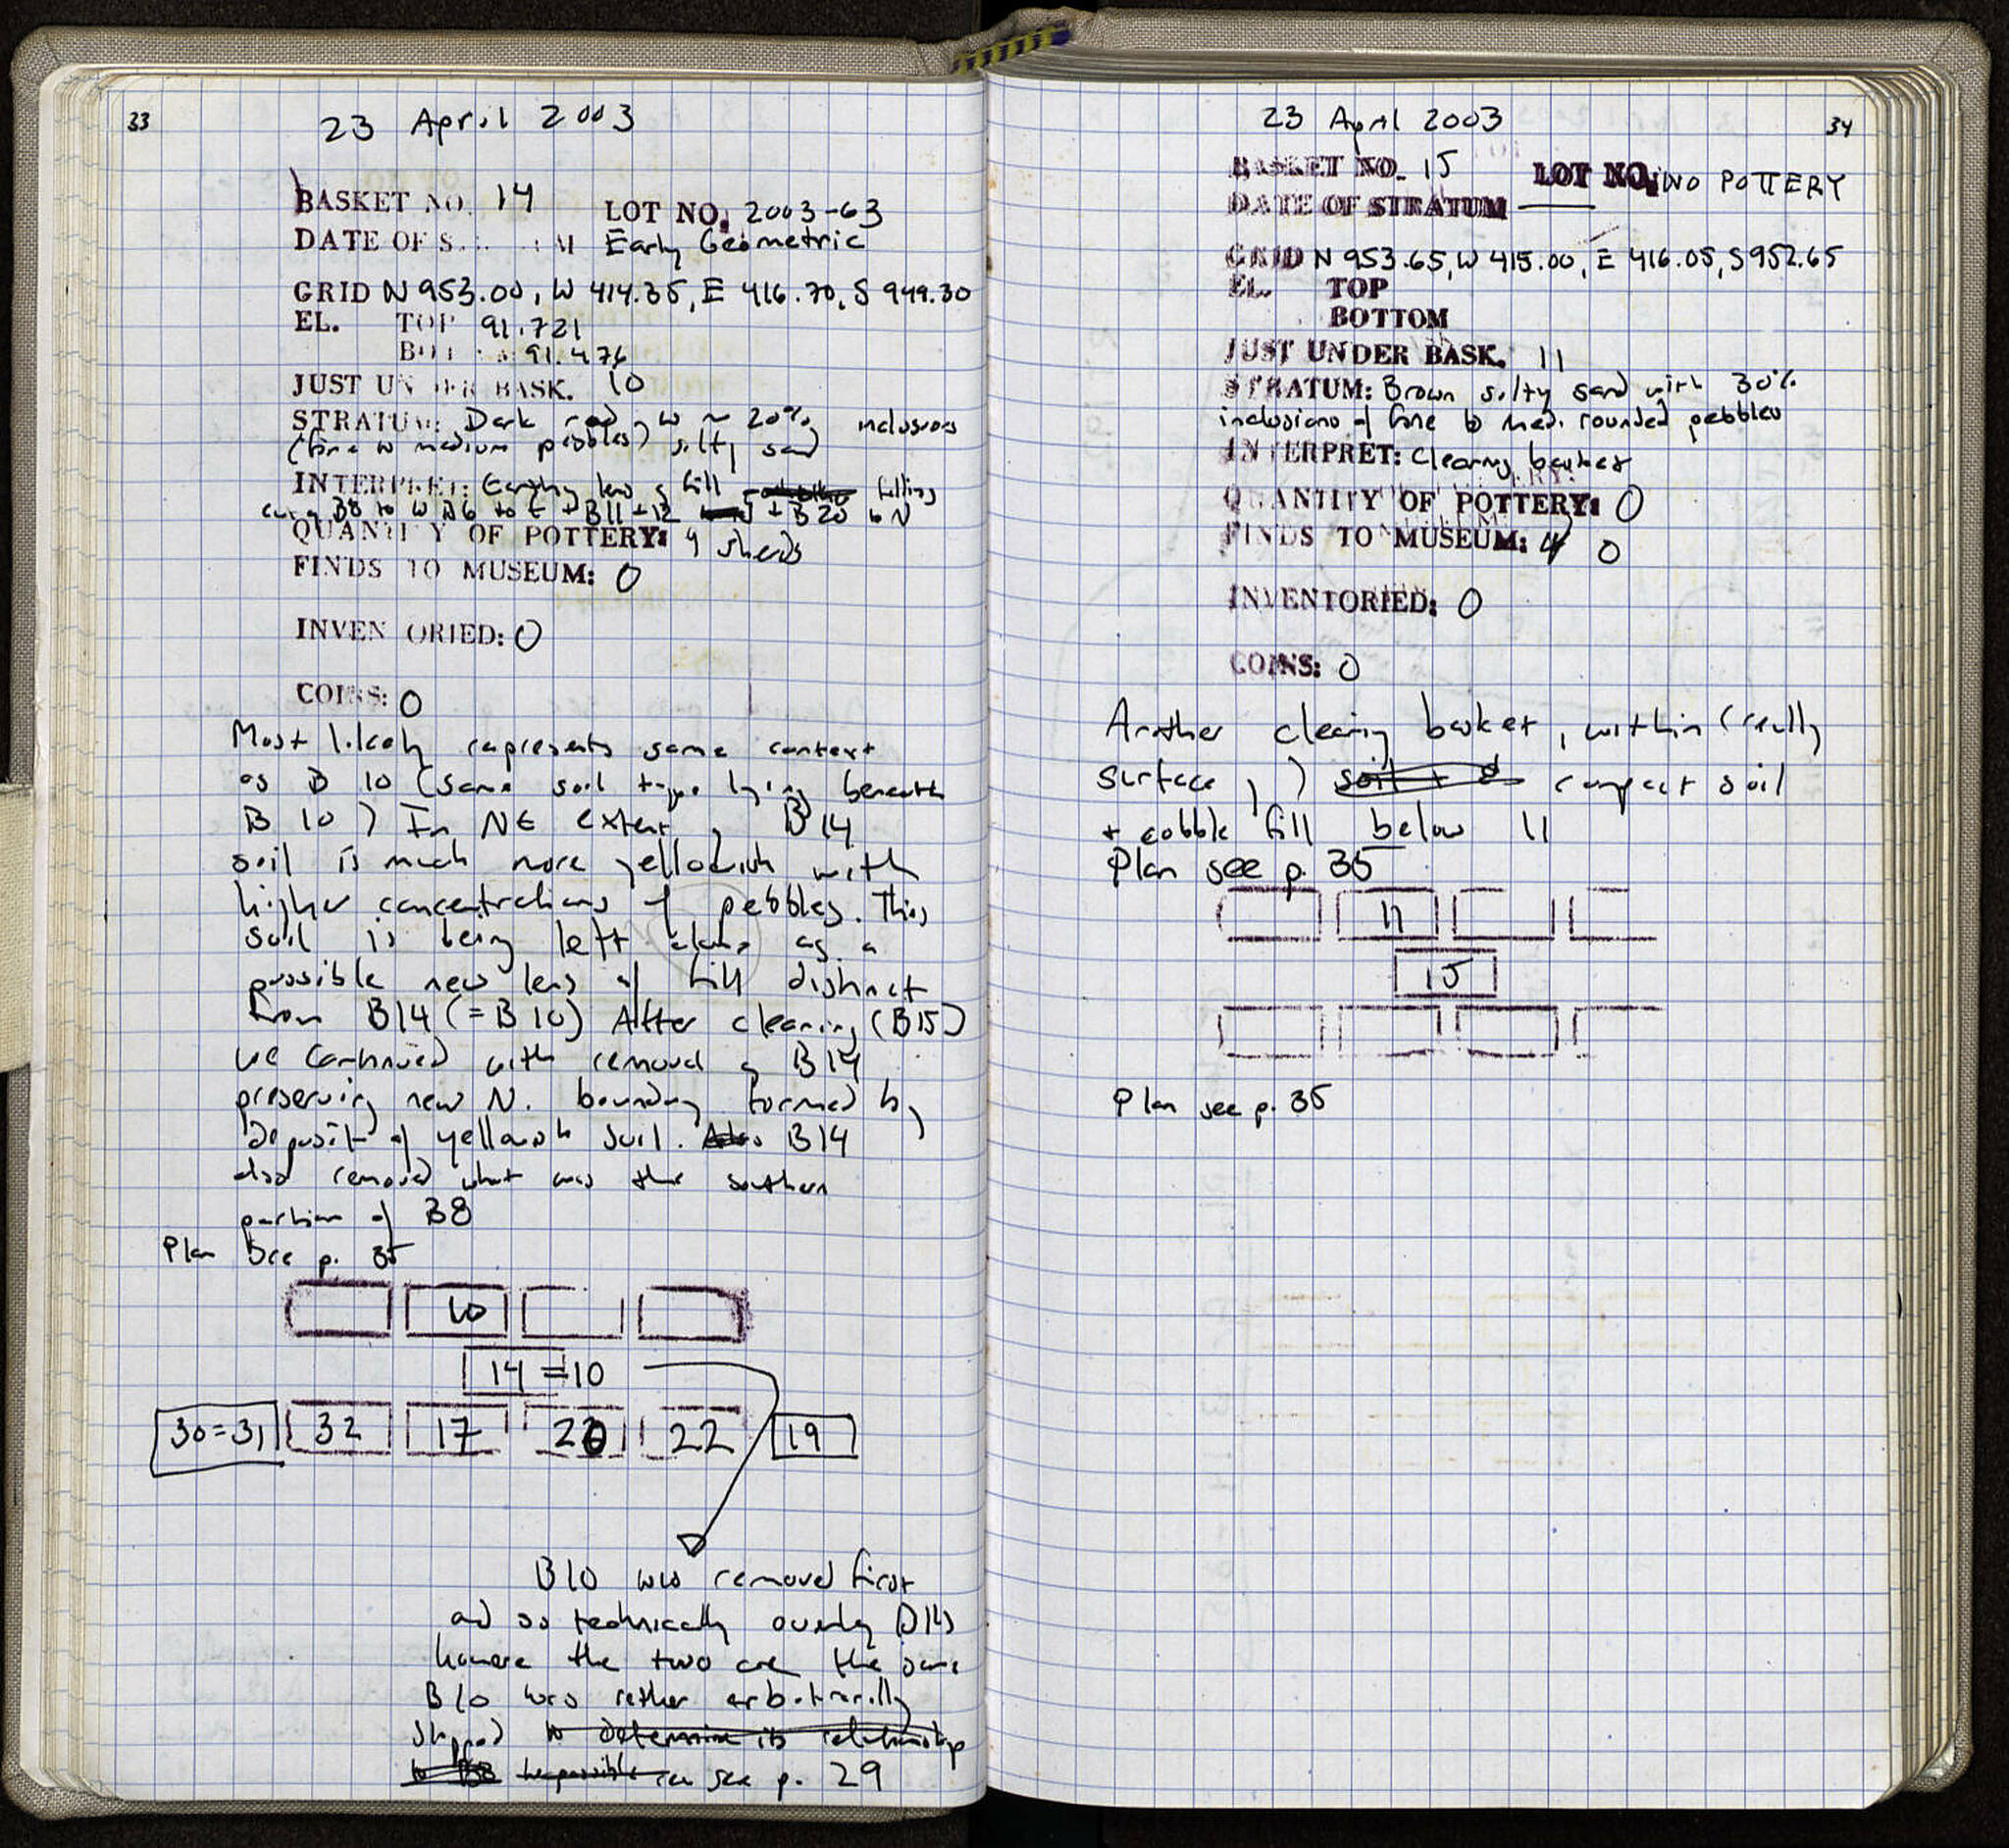 33
23 April 2003
BASKET NO. 14 LOT NO. 2003-63
DATE OF S M Early Geometric
GRID N 953.00, W 414.35, E 416.70, S 949.30
EL. TOP 91.721
BOT 91.476
JUST UNDER BASK. 10
STRATUM: Dark red w ~ 20% inclusions
(fine to medium pebbles) silty sand
INTERPRET: Earthy lens of fill filling
B8 to W B6 to E + B11+12 + B20 to N
QUANTITY OF POTTERY: 9 sherds
FINDS TO MUSEUM: 0
INVEN ORIED: 0
COINS: 0
Most likely represents same context
as B 10 (same soil type lying beneath
B 10) In NE extent, B14
soil is much more yellowish with
higher concentrations of pebbles. This
soil is being left alone as a
possible new lens of fill distinct
from B14 (=B10) After cleaning (B15)
we continued with removal of B14
preserving new N. boundary formed by
deposit of yellowish soil. Also B14
also removed what was the southern
portion of B8
Plan See p. 35
10
14 = 10
30=31 32 17 20 22 19
B10 was removed first
and so technically overlay B14
however the two are the same
B10 was rather arbitrarily
stopped to determine its relationship
see p. 29
34
23 April 2003
BASKET NO. 15 LOT NO. NO POTTERY
DATE OF STRATUM
GRID N 953.65, W 415.00, E 416.05, S 952.65
EL. TOP
BOTTOM
JUST UNDER BASK. 11
STRATUM: Brown silty sand with 30%
inclusions of fine to med. rounded pebbles
INTERPRET: Cleaning basket
QUANTITY OF POTTERY: 0
FINDS TO MUSEUM: 0
INVENTORIED: 0
COINS: 0
Another cleaning basket, within (really
surface) compact soil
+ cobble fill below 11
Plan see p. 35
11
15
Plan see p. 35